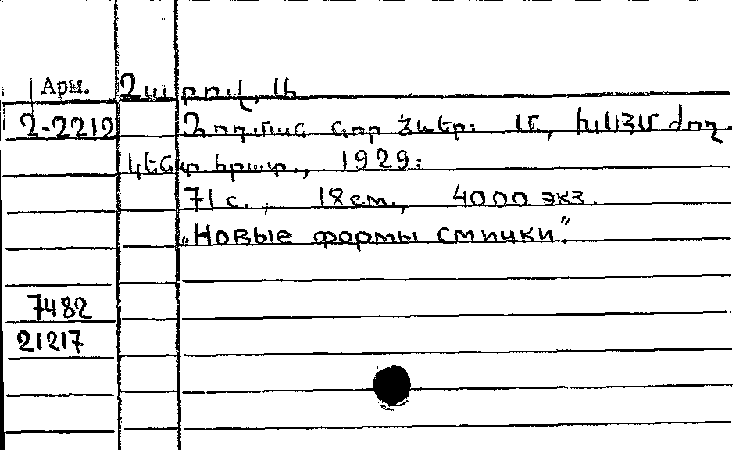 Арм. Չարով, Ս.
2-2212 Զոդման նոր ձևեր: Մ., ԽՍՀՄ ժող.
կենտ հրատ., 1929:
71 с., 18 см., 4000 экз.
„Новые формы смычки."
7482
21217